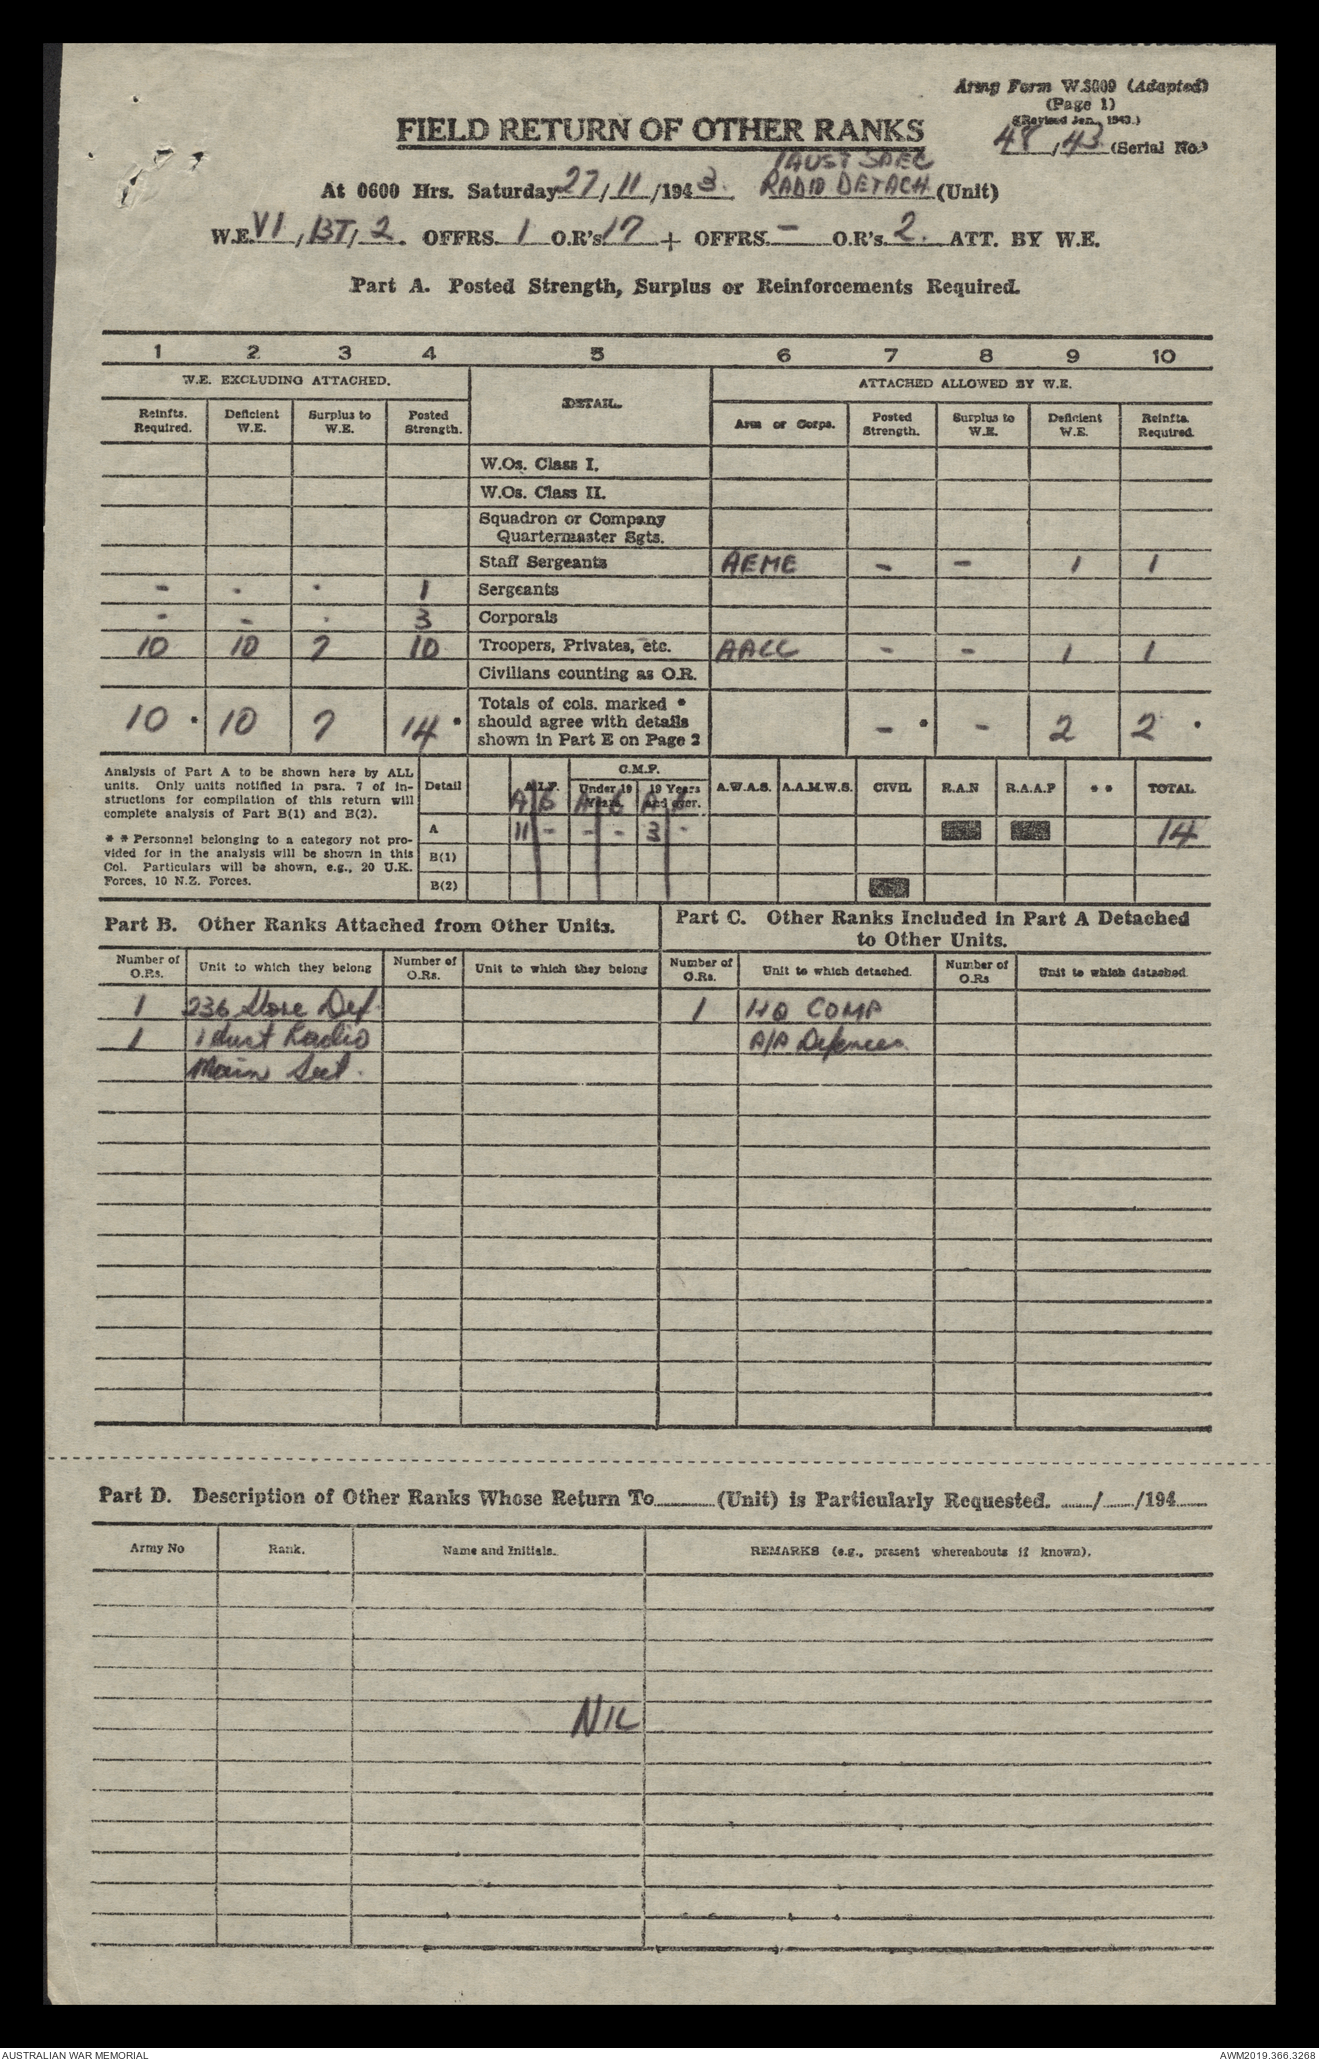 Army Form W.3009 (Adapted)
(Page 1)
(Revised Jan., 1943.)
48/43 (Serial No.)
FIELD RETURN OF OTHER RANKS
1 AUST SPEC
At 0600 Hrs. Saturday 27/11/1943. RADIO DETACH (Unit)
W.E. VI/BT/2. OFFRS. 1 O.R's. 17 + OFFRS. - O.R's. 2. ATT. BY W.E.
Part A. Posted Strength, Surplus or Reinforcements Required.
1 2 3 4 5 6 7 8 9 10
W.E. EXCLUDING ATTACHED. DETAIL. ATTACHED ALLOWED BY W.E.
Reinfts. Required. Deficient W.E. Surplus to W.E. Posted Strength. Arm or Corps. Posted Strength. Surplus to W.E. Deficient W.E. Reinfts. Required.
W.Os. Class I.
W.Os. Class II.
Squadron or Company
Quartermaster Sgts.
Staff Sergeants AEME - - 1 1
- - - 1 Sergeants
- - - 3 Corporals
10 10 7 10 Troopers, Privates, etc. AACC - - 1 1
Civilians counting as O.R.
10 * 10 7 14 * Totals of cols. marked * should agree with details shown in Part E on Page 2 - * - 2 2 *
Analysis of Part A to be shown here by ALL
units. Only units notified in para. 7 of in-
structions for compilation of this return will
complete analysis of Part B(1) and B(2).
* * Personnel belonging to a category not pro-
vided for in the analysis will be shown in this
Col. Particulars will be shown, e.g., 20 U.K.
Forces, 10 N.Z. Forces.
C.M.F.
Detail A.I.F. Under 19 Years. 19 Years and over. A.W.A.S. A.A.M.W.S. CIVIL R.A.N R.A.A.F * * TOTAL
A B A B A B
A 11 - - - 3 - 14
B(1)
B(2)
Part B. Other Ranks Attached from Other Units.
Part C. Other Ranks Included in Part A Detached
to Other Units.
Number of O.Rs. Unit to which they belong Number of O.Rs. Unit to which they belong Number of O.Rs. Unit to which detached. Number of O.Rs Unit to which detached
1 236 Store Det. 1 HQ COMP
1 1 Aust Radio A/A Defences
Main Sect.
Part D. Description of Other Ranks Whose Return To (Unit) is Particularly Requested. / /194
Army No Rank. Name and Initials. REMARKS (e.g., present whereabouts if known).
NIL
AUSTRALIAN WAR MEMORIAL
AWM2019.366.3268